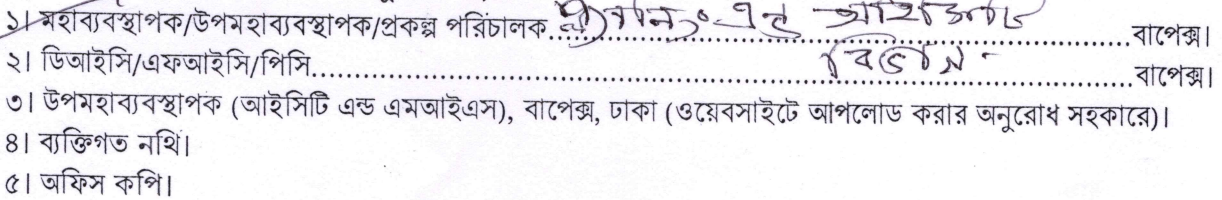 ১। মহাব্যবস্থাপক/উপমহাব্যবস্থাপক/প্রকল্প পরিচালক প্লানিং এন্ড আইসিটি বাপেক্স।
২। ডিআইসি/এফআইসি/পিসি.......................................................বিভাগ বাপেক্স।
৩। উপমহাব্যবস্থাপক (আইসিটি এন্ড এমআইএস), বাপেক্স, ঢাকা (ওয়েবসাইটে আপলোড করার অনুরোধ সহকারে)।
৪। ব্যক্তিগত নথি।
৫। অফিস কপি।